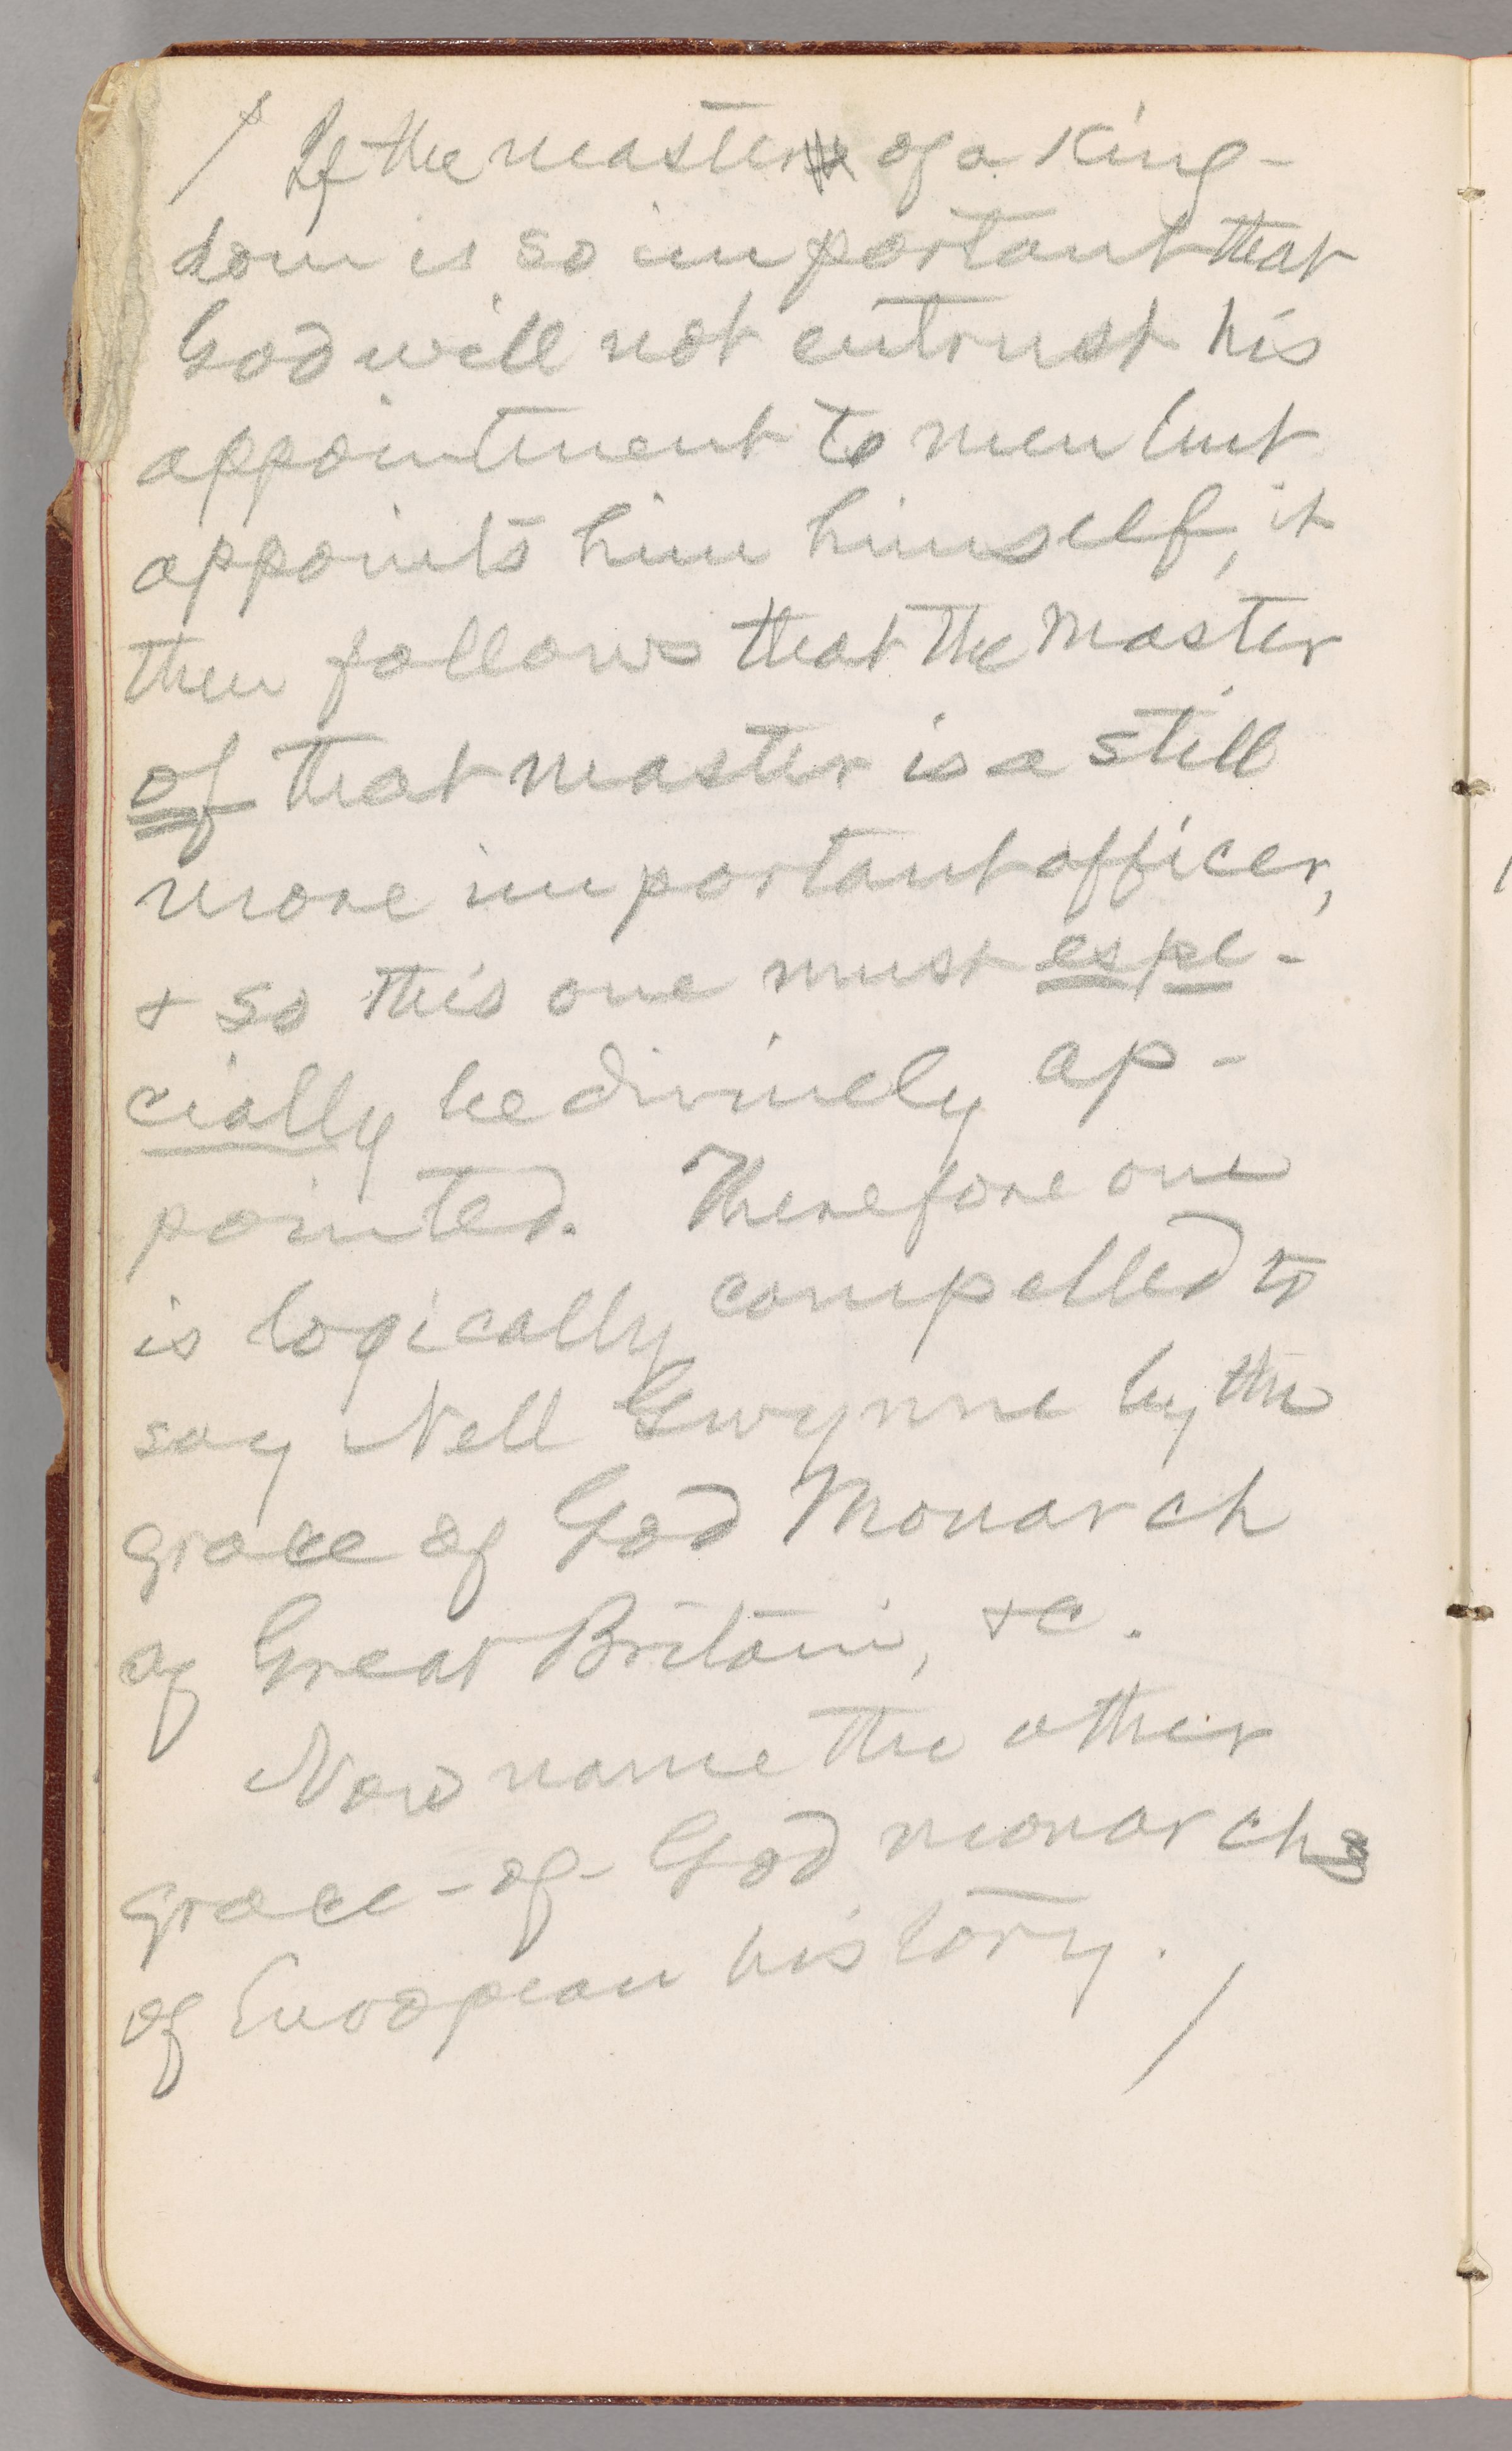 If the master of a King-
dom is so important that
God will not entrust his
appointment to men but
appoints him himself, it
then follows that the master
of that master is a still
more important officer,
& so this one must espe-
cially be divinely ap-
pointed. Therefore one
is logically compelled to
say Nell Gwynne by the
grace of God Monarch
of Great Britain, &c.
Now name the other
grace-of-God monarchs
of European history.